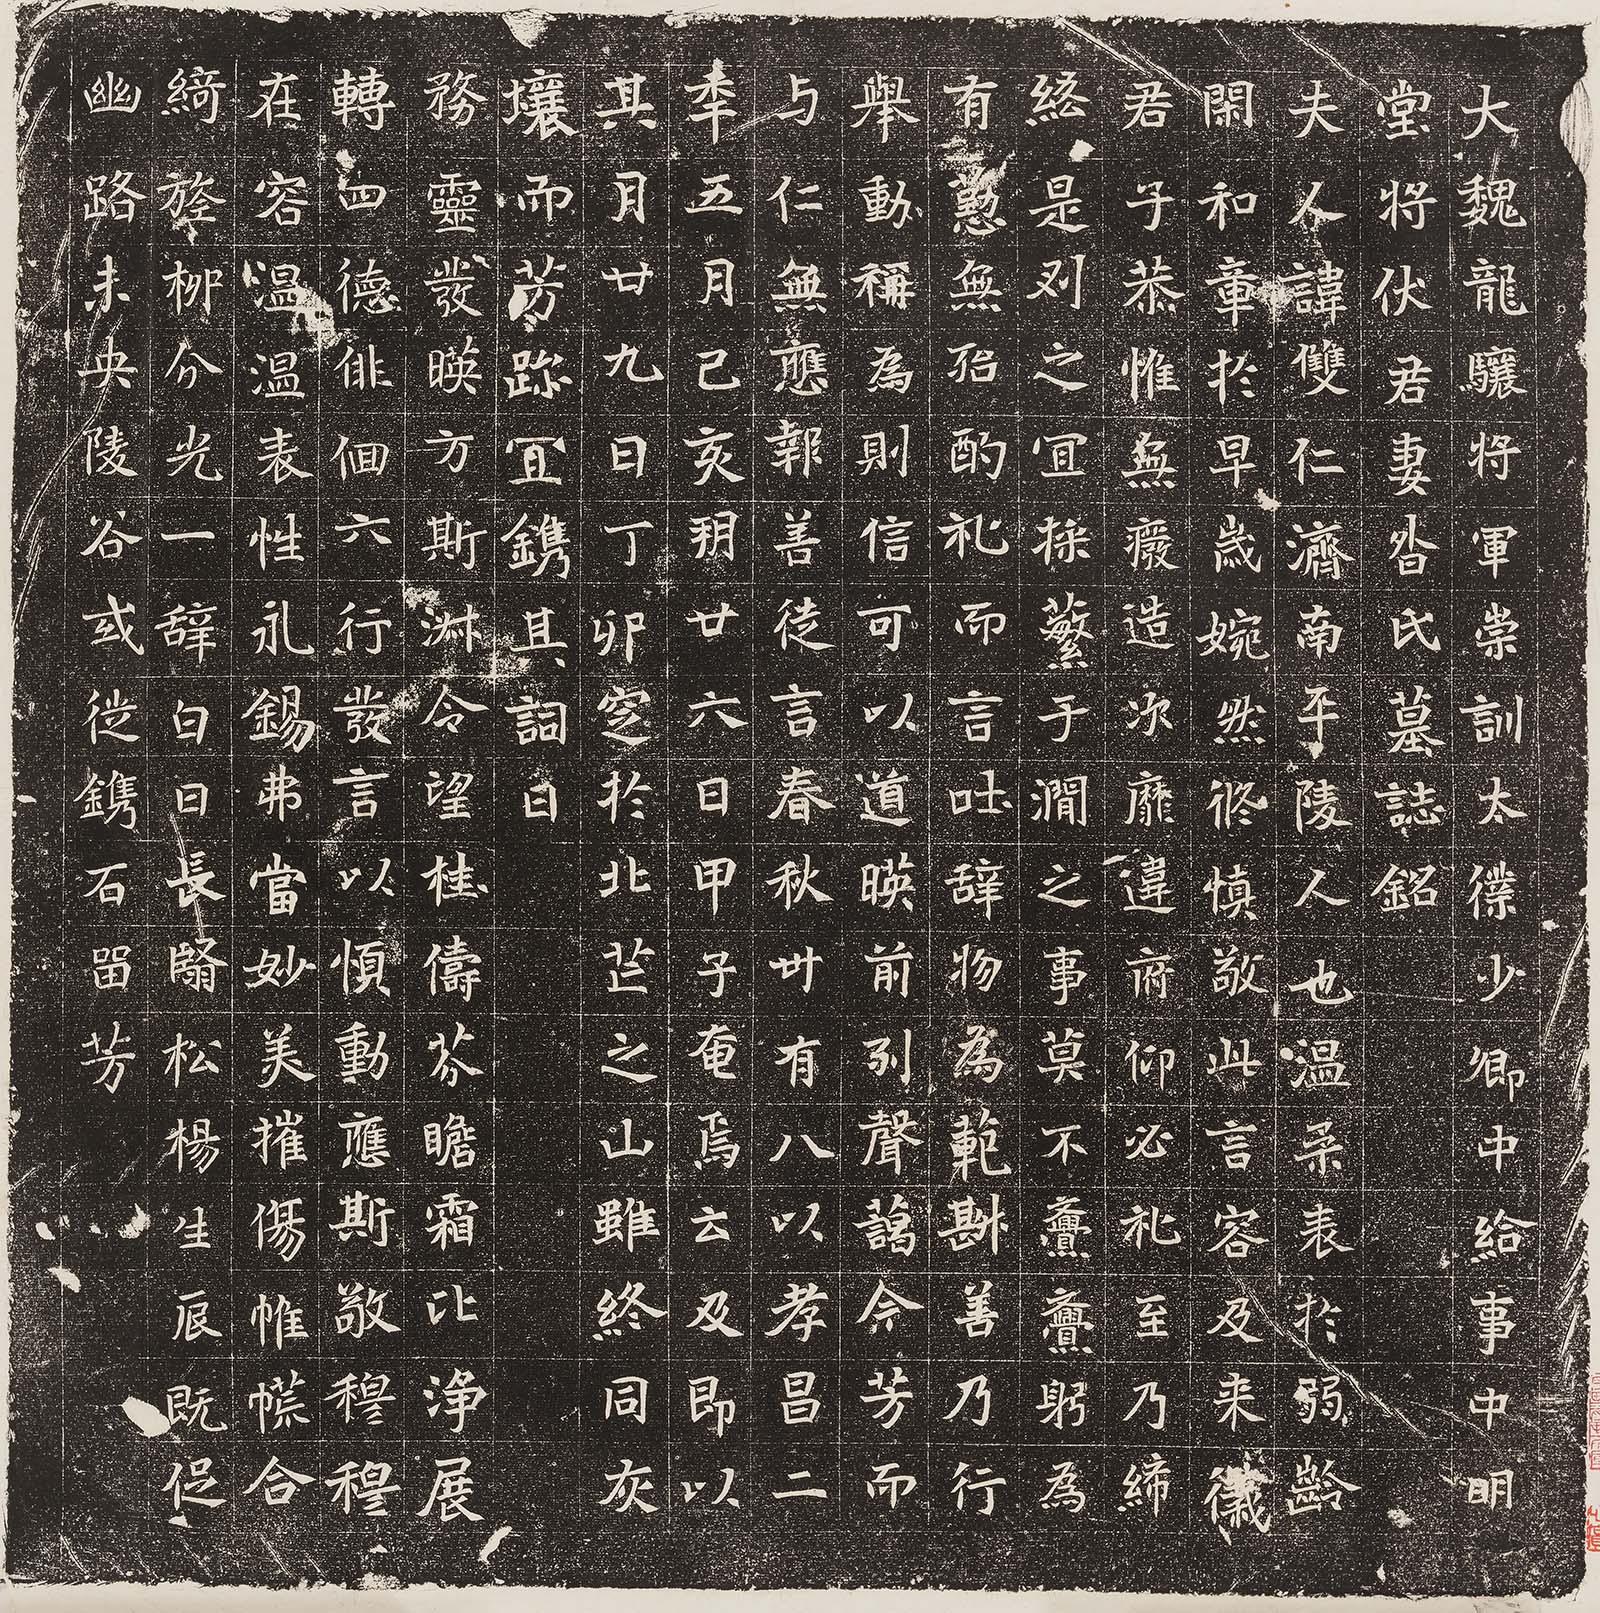 大魏龍驤將軍崇訓太僕少卿中給事中明
堂將伏君妻昝氏墓誌銘
夫人諱雙仁濟南平陵人也温柔表於弱齡
閑和章於早歲婉然脩慎敬此言容及来儀
君子恭惟無癈造次靡違府仰必礼至乃締
綌是刈之宜採蘩于澗之事莫不亹亹躬為
有懃無殆酌礼而言吐辞物為範斟善乃行
舉動稱為則信可以道暎前列聲藹今芳而
与仁無應報善徒言春秋卅有八以孝昌二
年五月己亥朔廿六日甲子奄焉云及即以
其月廿九日丁卯窆於北芒之山雖終同灰
壤而芳跡宜鐫其詞曰
務靈發暎方斯淋令望桂儔芬瞻霜比浄展
轉四德俳佪六行發言以慎動應斯敬穆穆
在容温温表性礼錫弗當妙美摧傷帷幌合
綺旌柳分光一辞白日長翳松楊生辰既促
幽路未央陵谷或徙鐫石留芳